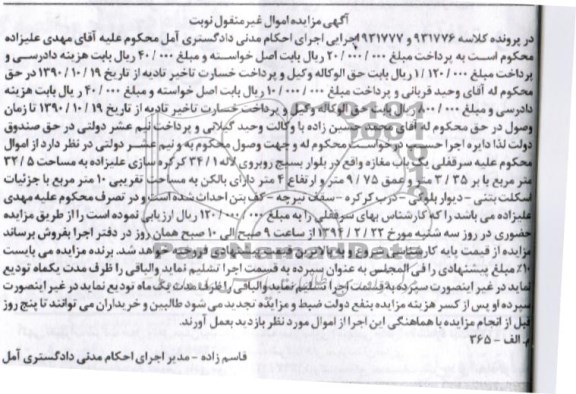 آگهی مزایده اموال غیرمنقول نوبت
در پرونده کلاسه ۹۳۱۷۷۶ و ۹۳۱۷۷۷ اجرایی اجرای احکام مدنی دادگستری آمل محکوم علیه آقای مهدی علیزاده
محکوم است به پرداخت مبلغ ۲۰/۰۰۰/۰۰۰ ریال بابت اصل خواسته و مبلغ ۴۰/۰۰۰ ریال بابت هزینه دادرسی و
پرداخت مبلغ ۱/۱۲۰/۰۰۰ ریال بابت حق الوکاله وکیل و پرداخت خسارت تاخیر تادیه از تاریخ ۱۳۹۰/۱۰/۱۹ در حق
محکوم له آقای وحید قربانی و پرداخت مبلغ ۱۰/۰۰۰/۰۰۰ ریال بابت اصل خواسته و مبلغ ۴۰/۰۰۰ ریال بابت هزینه
دادرسی و مبلغ ۸۰۰/۰۰۰ ریال بابت حق الوکاله وکیل و پرداخت خسارت تاخیر تادیه از تاریخ ۱۳۹۰/۱۰/۱۹ تا زمان
وصول در حق محکوم له آقای محمد حسین زاده با وکالت وحید گیلانی و پرداخت نیم عشر دولتی در حق صندوق
دولت لذا دایره اجرا حسب درخواست محکوم له و جهت وصول محکوم به و نیم عشر دولتی در نظر دارد از اموال
محکوم علیه سرقفلی یک باب مغازه واقع در بلوار بسیج روبروی لاله ۳۴/۱ کرکره سازی علیزاده به مساحت ۳۲/۵
متر مربع با بر ۳/۳۵ متر و عمق ۹/۷۵ متر و ارتفاع ۴ متر دارای بالکن به مساحت تقریبی ۱۰ متر مربع با جزئیات
اسکلت بتنی - دیوار بلوکی - درب کرکره - سقف تیرچه - کف بتن احداث شده است و در تصرف محکوم علیه مهدی
علیزاده می باشد را که کارشناس بهای سرقفلی را به مبلغ ۱۲۰/۰۰۰/۰۰۰ ریال ارزیابی نموده است را از طریق مزایده
حضوری در روز سه شنبه مورخ ۱۳۹۴/۳/۲۲ از ساعت ۹ صبح الی ۱۰ صبح همان روز در دفتر اجرا بفروش برساند
مزایده از قیمت پایه کارشناسی شروع و به بالاترین قیمت پیشنهادی فروخته خواهد شد. برنده مزایده می بایست
۱۰٪ مبلغ پیشنهادی را فی المجلس به عنوان سپرده به قسمت اجرا تسلیم نماید والباقی را ظرف مدت یکماه تودیع
نماید در غیر اینصورت سپرده به قسمت اجرا تسلیم نماید والباقی را ظرف مدت یک ماه تودیع نماید در غیر اینصورت
سپرده او پس از کسر هزینه مزایده بنفع دولت ضبط و مزایده تجدید می شود طالبین و خریداران می توانند تا پنج روز
قبل از انجام مزایده با هماهنگی این اجرا از اموال مورد نظر بازدید بعمل آورند.
م. الف - ۳۶۵
قاسم زاده - مدیر اجرای احکام مدنی دادگستری آمل
ParsNamadData